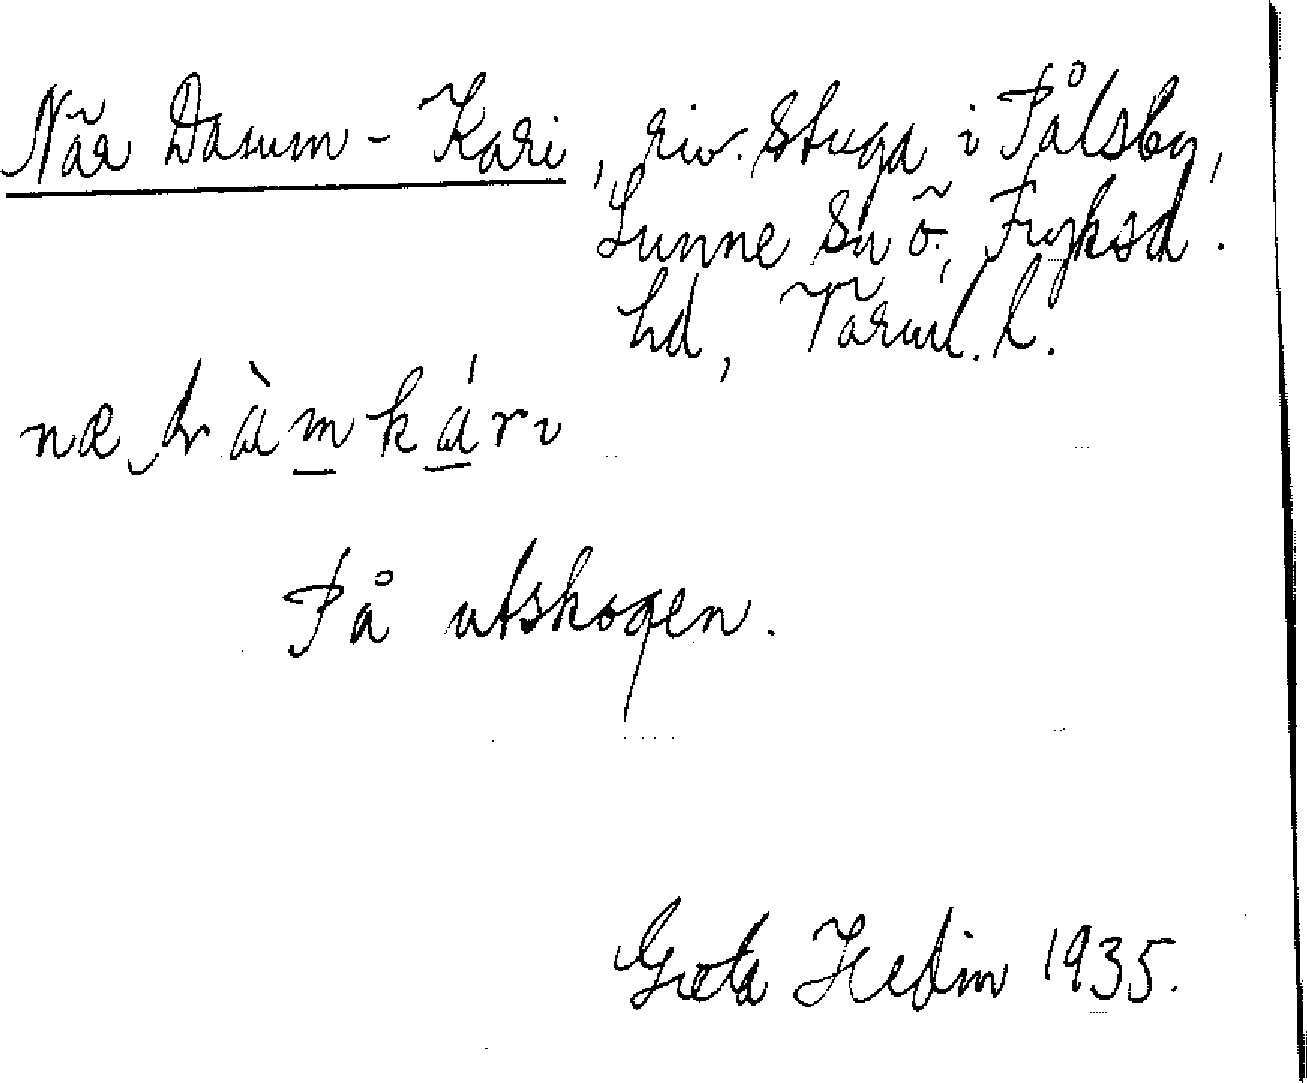 När Dasum-Kari, riv. stuga i Pålsby,
Sunne sn ö., Fryksd.
hd, Värml. l.
På utskogen.
Greta Hedin 1935.